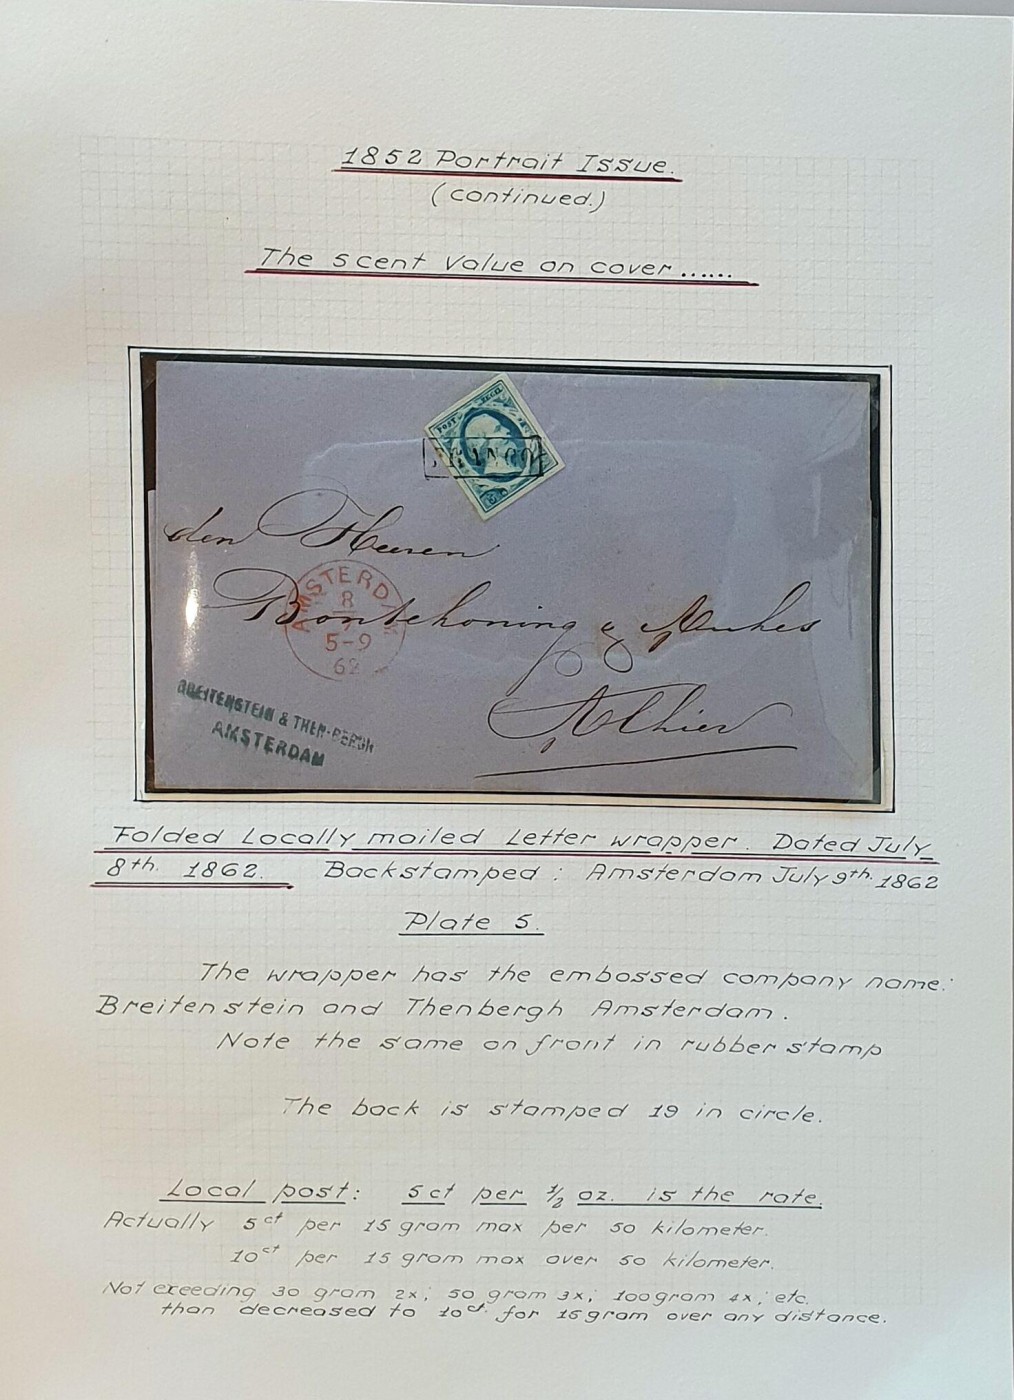 1852 Portrait Issue.
(continued.)
The 5 cent value on cover......
POST ZEGEL
FRANCO
den Heeren
Bontekoning &
Alhier
AMSTERDAM
8
7
5-9
62
BREITENSTEIN & THEN-BERGH
AMSTERDAM
Folded Locally mailed Letter wrapper. Dated July
8th. 1862. Backstamped: Amsterdam July 9th. 1862
Plate 5.
The wrapper has the embossed company name:
Breitenstein and Thenbergh Amsterdam.
Note the same on front in rubber stamp
The back is stamped 19 in circle.
Local post: 5ct per 1/2 oz. is the rate.
Actually 5ct per 15 gram max per 50 kilometer.
10ct per 15 gram max over 50 kilometer.
Not exeeding 30 gram 2x; 50 gram 3x; 100 gram 4x; etc.
than decreased to 10ct. for 15 gram over any distance.